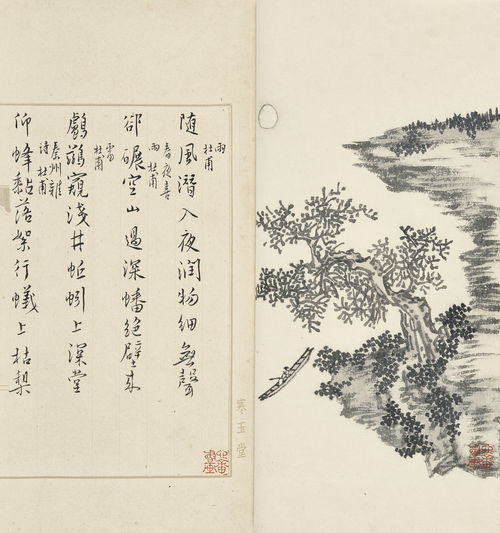 雨
杜甫
随風潛入夜潤物細無聲
春夜喜
雨 杜甫
卻碾空山過深蟠絕壁來
雷
杜甫
鸕鶿窺淺井蚯蚓上深堂
秦州雜
詩 杜甫
仰蜂黏落絮行蟻上枯梨
寒玉堂